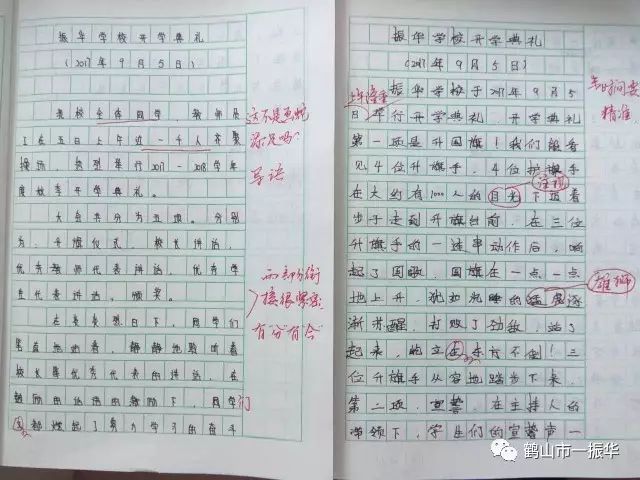 振华学校开学典礼
（2017年9月5日）
我校全体同学、教师员
工在五日上午近一千人齐聚
操场，举行2017-2018学年
度秋季开学典礼。
大会共分为五项。分别
为，升旗仪式，校长讲话，
优秀教师代表讲话，优秀学
生代表讲话，颁奖。
在炎炎烈日下，同学们
笔直地站着，静静地聆听着
校长与优秀代表的讲话，在
鼓励的话语的激励下，同学们
都燃起了努力学习的奋斗
这不是画蛇
添足吗？
导语
两部分衔
接很紧密
有“分”有“合”
振华学校开学典礼
（2017年9月5日）
上午隆重
振华学校于2017年9月5
日举行开学典礼。开学典礼
第一项是升国旗！我们能看
见4位升旗手，4位护旗手
在大约有1000人的目光下迈着
注视
步子走到升旗台前，在三位
升旗手的一连串动作后，响
起了国歌，国旗在一点一点
地上升，犹如沉睡的猛虎逐
雄狮
渐苏醒，打败了劲敌，站了
起来，屹立在东方不倒！三
位升旗手从容地踏步下来。
第二项，宣誓，在主持人的
带领下，学生们的宣誓声一
时间要
精准
鹤山市一振华